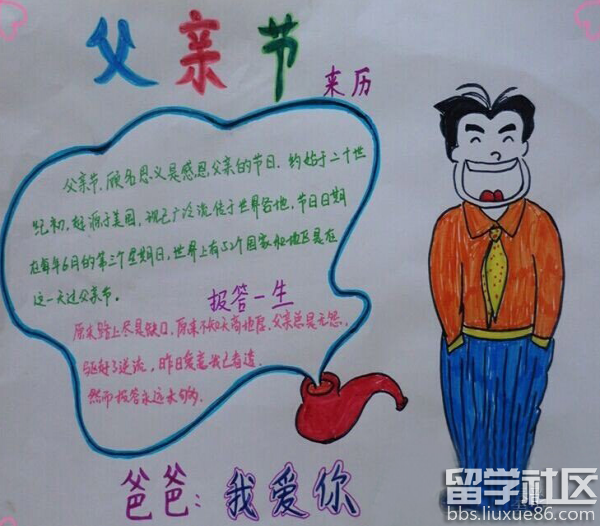 父亲节
来历
父亲节,顾名思义是感恩父亲的节日。约始于二十世
纪初,起源于美国,现已广泛流传于世界各地,节日日期
在每年6月的第三个星期日,世界上有52个国家和地区是在
这一天过父亲节。
报答一生
原来路上尽是缺口,原来不知天高地厚,父亲总是无怨,
昨日
然而报答永远未句够
爸爸:我爱你
留学社区
bbs.liuxue86.com